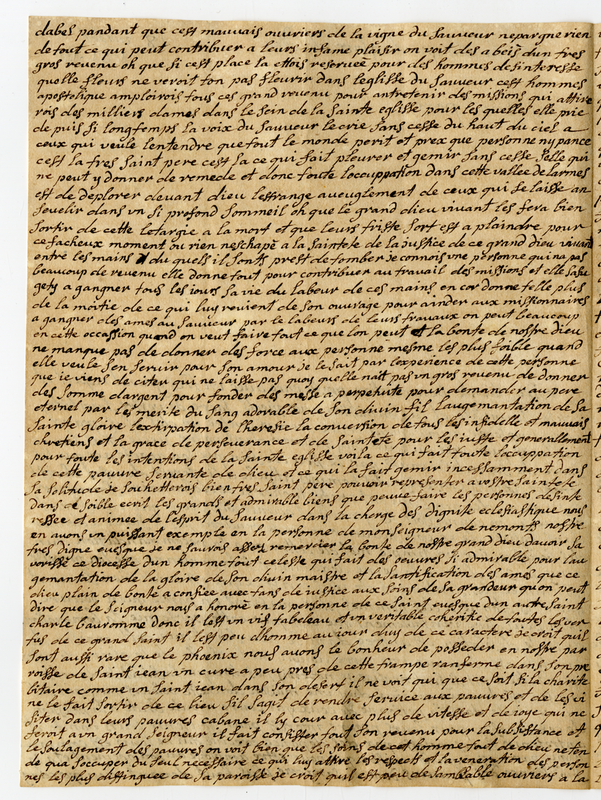 dabel pandant que cest mauvais ouvriers de la vigne du sauveur nepargne rien
de tout ce qui peut contribuer a leurs infame plaisir on voit des abeis dun tres
gros revenu oh que si cest place la etois reservee pour des hommes desinteresse
quelle fleurs ne veroit ton pas fleurir dans leglisse du sauveur cest hommes
apostolique amploirois tous ces grand revenu pour antretenir des missions qui attire
rois des milliers dames dans le sein de la sainte eglisse pour les quelles elle prie
de puis si longtemps la voix du sauveur le crie sans cesse du haut du ciel a
ceux qui veule lentendre que tout le monde perit et prex que personne ny pance
cest la tres saint pere cest la ce qui fait pleurer et gemir sans cesse selle qui
ne peut y donner de remede et donc toute loccupation dans cette vallee de larmes
est de deplorer devant dieu lestrange aveuglement de ceux qui se laisse an
sevelir dans un si profond sommeil oh que le grand dieu vivant les fera bien
sortir de cette letargie a la mort et que leurs triste sort est a plaindre pour
ce facheux moment ou rien neschape a la saintete de la justice de ce grand dieu vivant
entre les mains du quels il sonts prest de tomber je connois une personne qui na pas
beaucoup de revenu elle donne tout pour contribuer au travail des missions et elle sasu
gety a gangner tous les jours sa vie du labeur de ces mains en cor donne telle plus
de la moitie de ce qui luy revient de son ouvrage pour ainder aux missionnaires
a gangner des ames au sauveur par le labeurs de leurs travaux on peut beaucoup
en cette occassion quand on veut faire tout ce que lon peut et la bonte de nostre dieu
ne manque pas de donner des force aux personne mesme les plus foible quand
elle veule sen servir pour son amour je le sait par loxperience de cette personne
que ie viens de citer qui ne laisse pas quoy quelle nait pas un gros revenu de donner
des somme dargent pour fonder des messe a perpetuite pour demander au pere
eternel par les merite du sang adorable de son divin fil laugemantation de sa
sainte gloire lextirpation de lheresie la conversion de tous les infidelle et mauvais
chretiens et la grace de perseverance et de saintete pour les juste et generallement
pour toute les intentions de la sainte eglisse voila ce qui fait toute loccupation
de cette pauvre servante de dieu et ce qui la fait gemir incessamment dans
sa solitude je souhetterois bien tres saint pere pouvoir representer a vostre saintete
dans ce foible ecrit les grands et admirable biens que peuve faire les personnes desinte
ressee et animee de lesprit du sauveur dans la charge des dignite eclesiastique nous
en avons un puissant exemple en la personne de monseigneur de nemonts nostre
tres digne evesque je ne saurois asses remercier la bonte de nostre grand dieu davoir sa
vorisse ce diocesse dun homme tout celeste qui fait des oeuvres si admirable pour lau
gemantation de la gloire de son divin maistre et la santification des ames que ce
dieu plain de bonte a confiee avec tans de justice aux soins de sa grandeur quon peut
dire que le seigneur nous a honoré en la personne de ce saint evesque dun autre saint
charle bauromme donc il est un vif tabeleau et un veritable eheritie de toutes les ver
tus de ce grand saint il est peu dhomme au jour duy de ce caractere je croit quil
sont aussi rare que le phoenix nous avons le bonheur de posseder en nostre par
roisse de saint jean un cure a peu pres de cette trampe ranferme dans son pre
bitaire comme un saint jean dans son desert il ne voit qui que ce soit si la charite
ne le fait sortir de ce lieu sil sagit de rendre service aux pauvres et de les vi
siter dans leurs pauvres cabane il ly cour avec plus de vitesse et de joye qui ne
feroit a un grand seigneur il fait consister tout son revenu pour la subsistance et
le soulagement des pauvres on voit bien que les soins de cet homme tout de dieu ne ten
de qua soccuper du seul necessaire ce qui luy attire les respects et la veneration des person
nes les plus distinguee de sa paroisse je croit quil est peu de samblable ouvriers a la